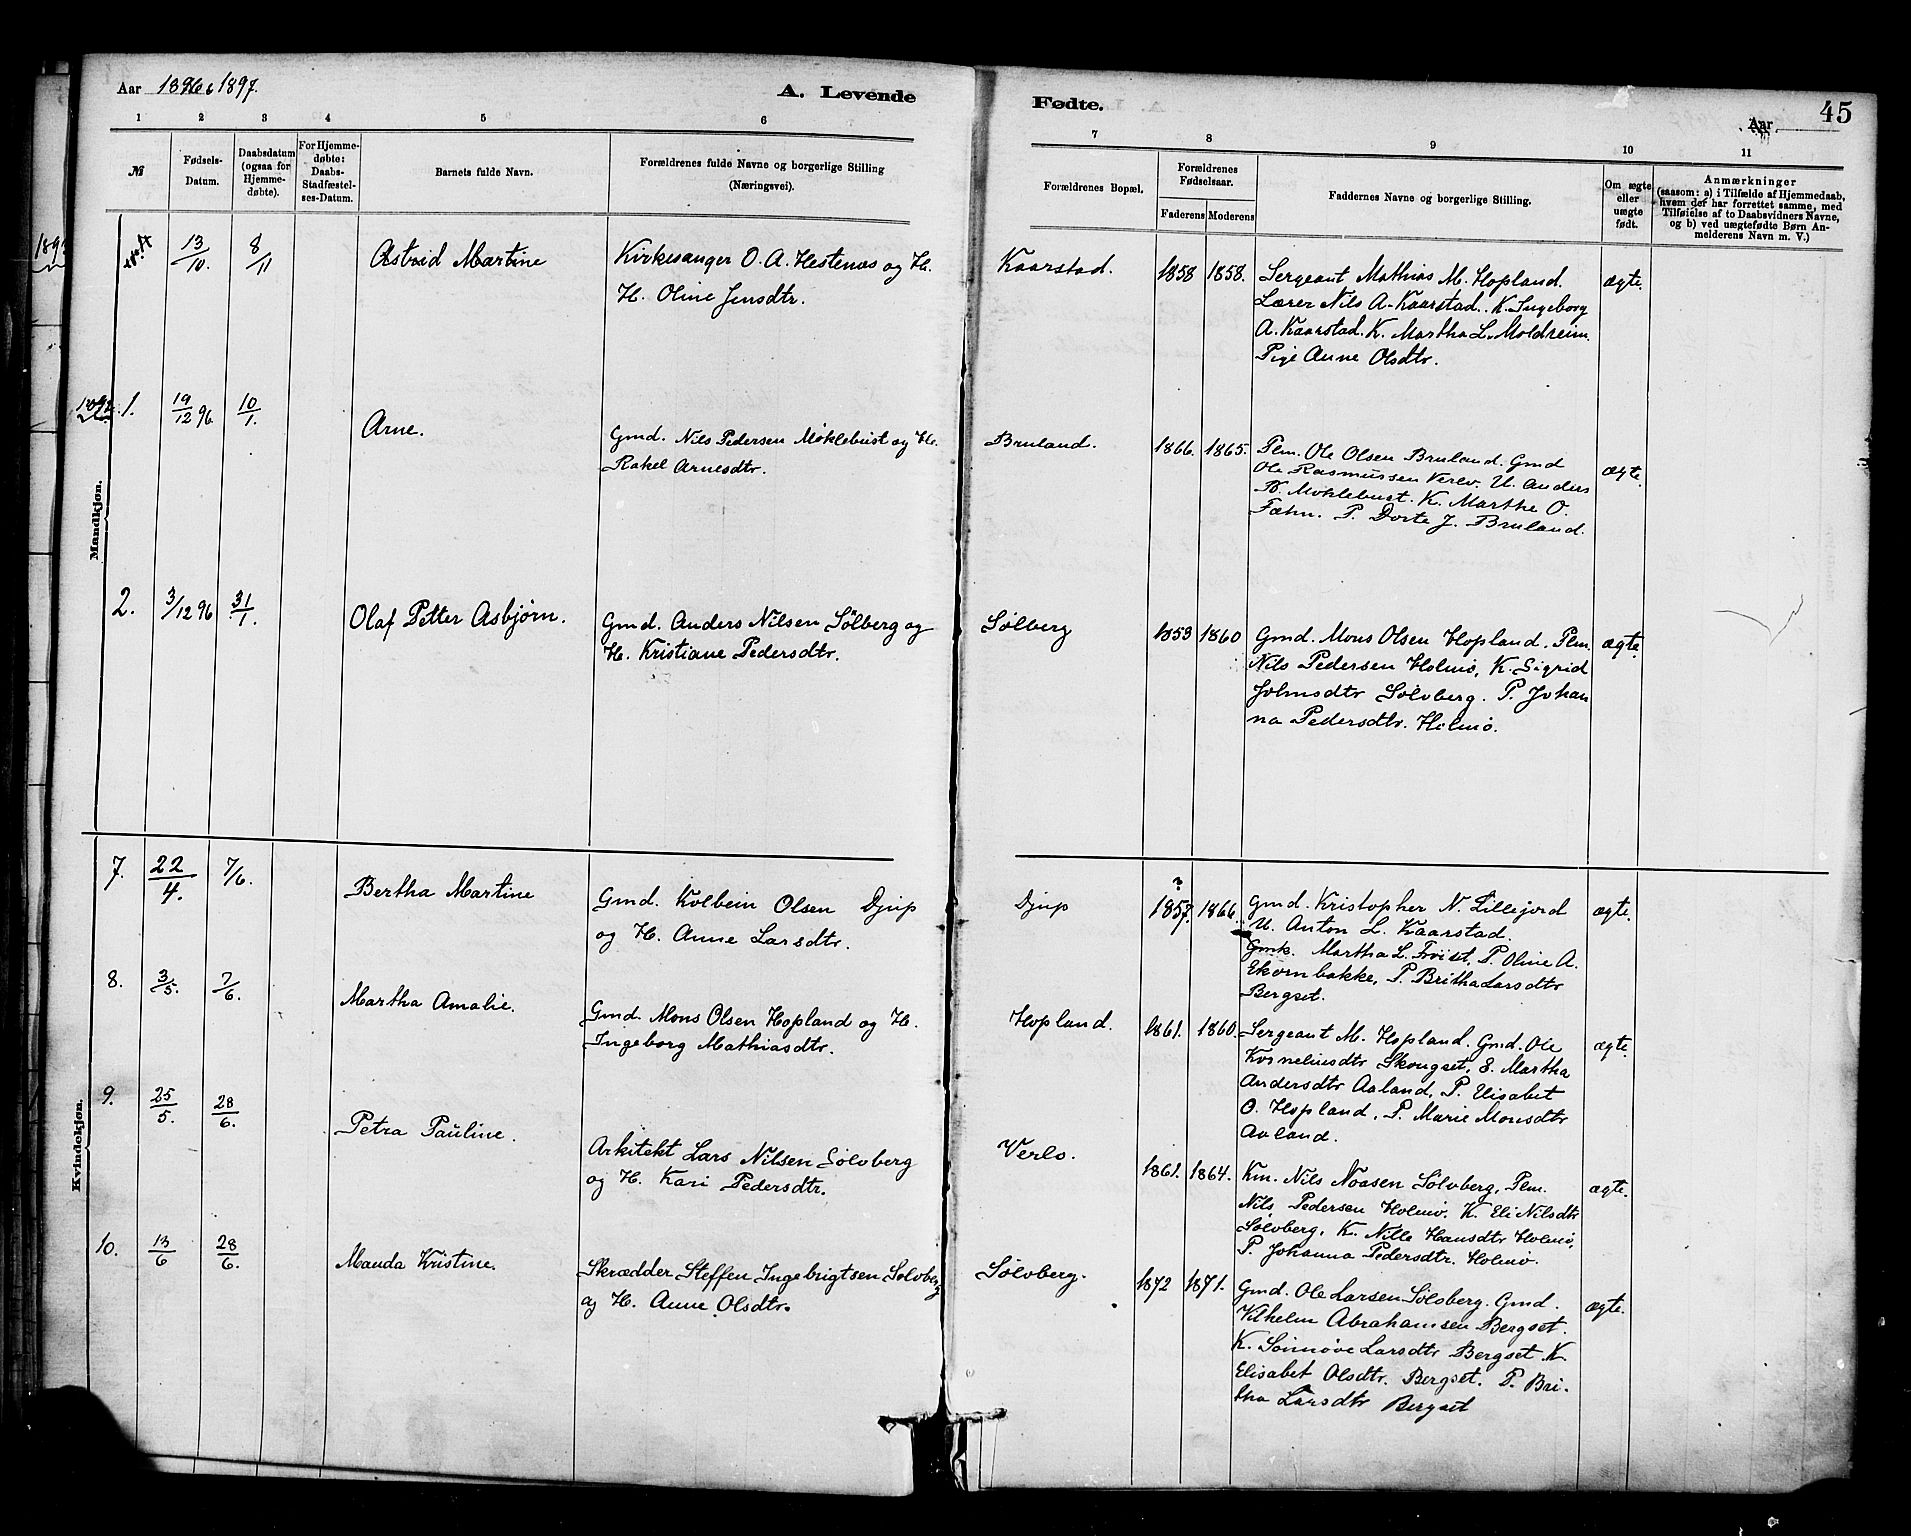 Aar 1896 1897.
A. Levende
Fødte.
45
Aar
1 2 3 4 5 6 7 8 9 10 11
№
Fødsels-
Datum.
Daabsdatum
(ogsaa for
Hjemme-
døbte).
For Hjemme-
døbte:
Daabs-
Stadfæstel-
ses-Datum.
Barnets fulde Navn.
Forældrenes fulde Navne og borgerlige Stilling
(Næringsvei).
Forældrenes Bopæl.
Forældrenes
Fødselsaar.
Faderens Moderens
Faddernes Navne og borgerlige Stilling.
Om ægte
eller
uægte
født.
Anmærkninger
(saasom: a) i Tilfælde af Hjemmedaab,
hvem der har forrettet samme, med
Tilføielse af to Daabsvidners Navne,
og b) ved uægtefødte Børn An-
melderens Navn m. V.)
13/10. 8/11 Astrid Martine
Kirkesanger O. A. Hestenæs og H.
H. Oline Jensdtr.
Kaarstad. 1858 1858.
Sergeant Mathias M. Hopland.
Lærer Nils A. Kaarstad. K. Ingeborg
A. Kaarstad. K. Martha L. Moldreim.
Pige Anne Olsdtr.
ægte.
Mandkjøn.
1. 19/12 96 10/1. Arne.
Gmd. Nils Pedersen Møklebust og H.
Rakel Arnesdtr.
Bruland. 1866. 1865.
Plm. Ole Olsen Bruland. Gmd
Ole Rasmussen Verlo. U. Anders
P. Møklebust. K. Marthe O.
Fæhn. P. Dorte J. Bruland.
ægte.
2. 3/12 96 31/1. Olaf Petter Asbjørn.
Gmd. Anders Nilsen Sølberg og
H. Kristiane Pedersdtr.
Sølberg 1853 1860
Gmd. Mons Olsen Hopland. Plm.
Nils Pedersen Holmø, K. Sigrid
Johnsdtr Sølvberg. P. Johan
na Pedersdtr. Holmø.
ægte.
Kvindekjøn.
7. 22/4. 7/6. Bertha Martine
Gmd. Kolbein Olsen Djup
og H. Anne Larsdtr.
Djup ? 1857. 1866.
Gmd. Kristopher N. Lillejord
U. Anton L. Kaarstad.
Gmk. Martha L. Frøiset, P. Oline A.
Ekornbakke, P. Britha Larsdtr
Bergset.
ægte.
8. 3/5. 7/6. Martha Amalie.
Gmd. Mons Olsen Hopland og H.
Ingeborg Mathiasdtr.
Hopland. 1861. 1860.
Sergeant M. Hopland. Gmd. Ole
Korneliusdtr Skougset, E. Martha
Andersdtr Aaland, P. Elisabet
O. Hopland, P. Marie Monsdtr
Aaland.
ægte.
9. 25/5. 28/6. Petra Pauline.
Arkitekt Lars Nilsen Sølvberg
og H. Kari Pedersdtr.
Verlo. 1861. 1864.
Km. Nils Noasen Sølvberg, Plm.
Nils Pedersen Holmø. K. Eli Nilsdtr
Sølvberg, K. Nille Hansdtr Holmø,
P. Johanna Pedersdtr. Holmø.
ægte.
10. 13/6 28/6. Manda Kristine.
Skrædder Steffen Ingebrigtsen Sølvberg
og H. Anne Olsdtr.
Sølvberg. 1872 1871.
Gmd. Ole Larsen Sølvberg. Gmd.
Vilhelm Abrahamsen Bergset.
K. Sønnøve Larsdtr Bergset K.
Elisabet Olsdtr. Bergset. P. Bri-
tha Larsdtr Bergset
ægte.